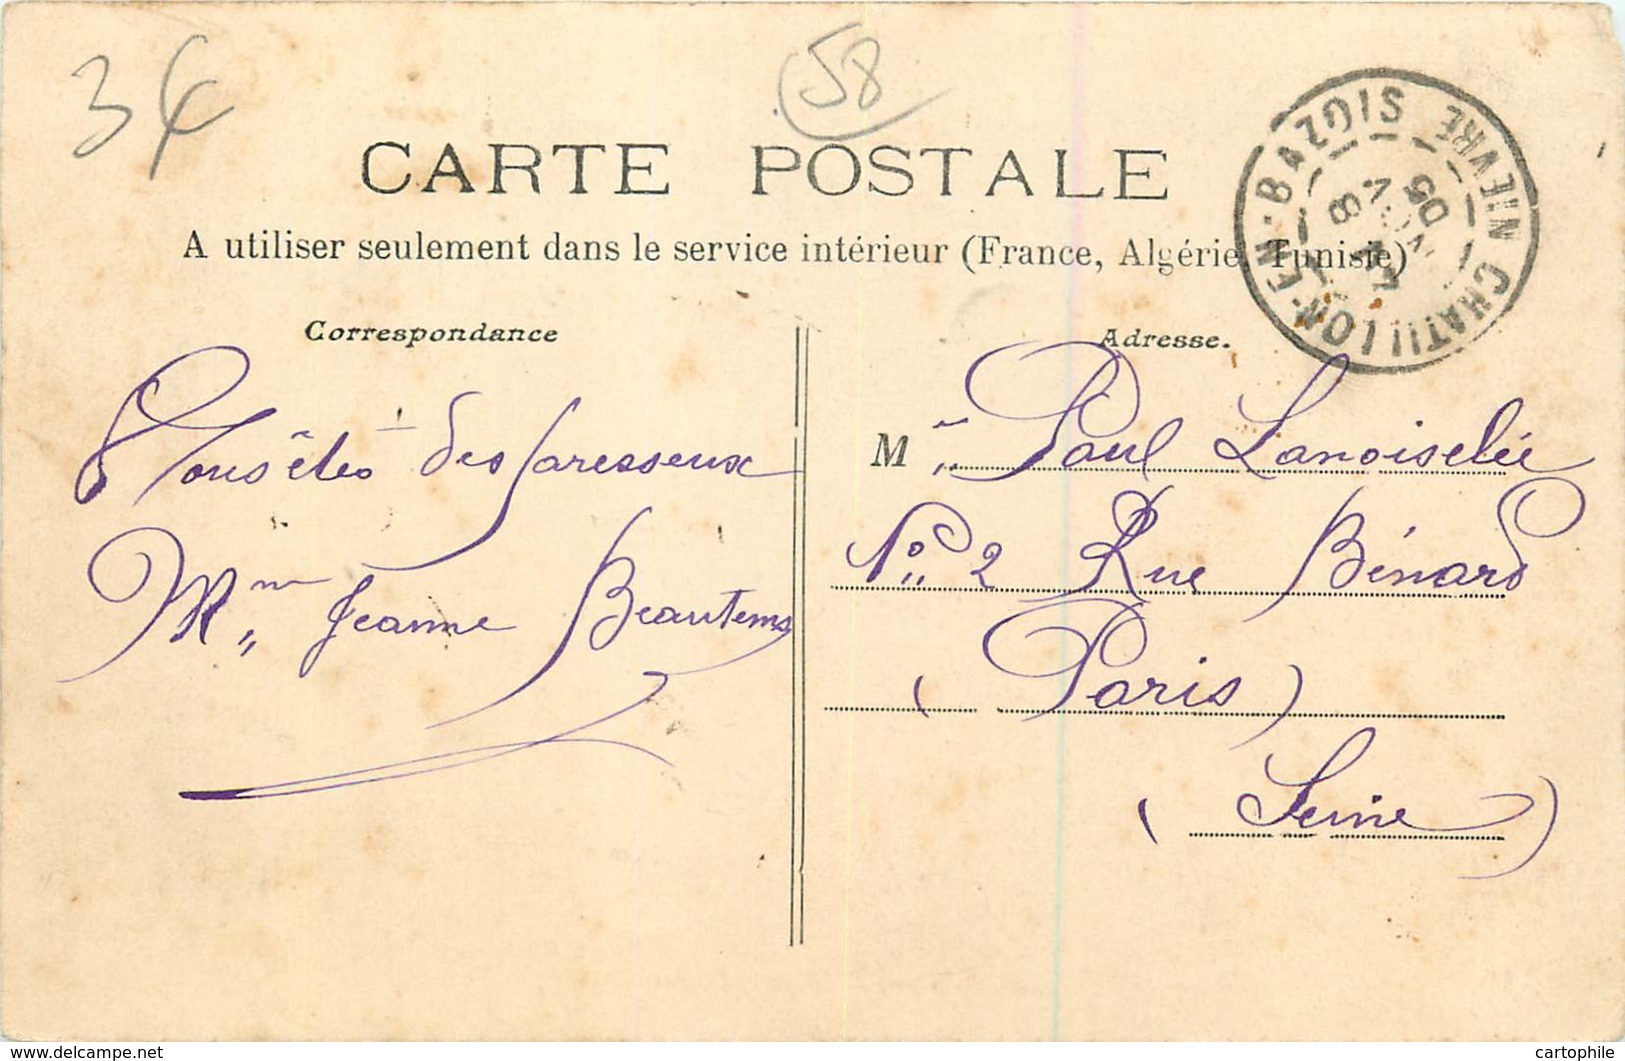 34
58
CARTE POSTALE
A utiliser seulement dans le service intérieur (France, Algérie, Tunisie)
CHATILLON-EN-BAZOIS NIEVRE
8
05
Correspondance
Vous êtes des paresseux
Mme Jeanne Beautems
Adresse.
Mr Paul Lanoiselée
No 2 Rue Bénard
(Paris)
(Seine)
www.delcampe.net
cartophile